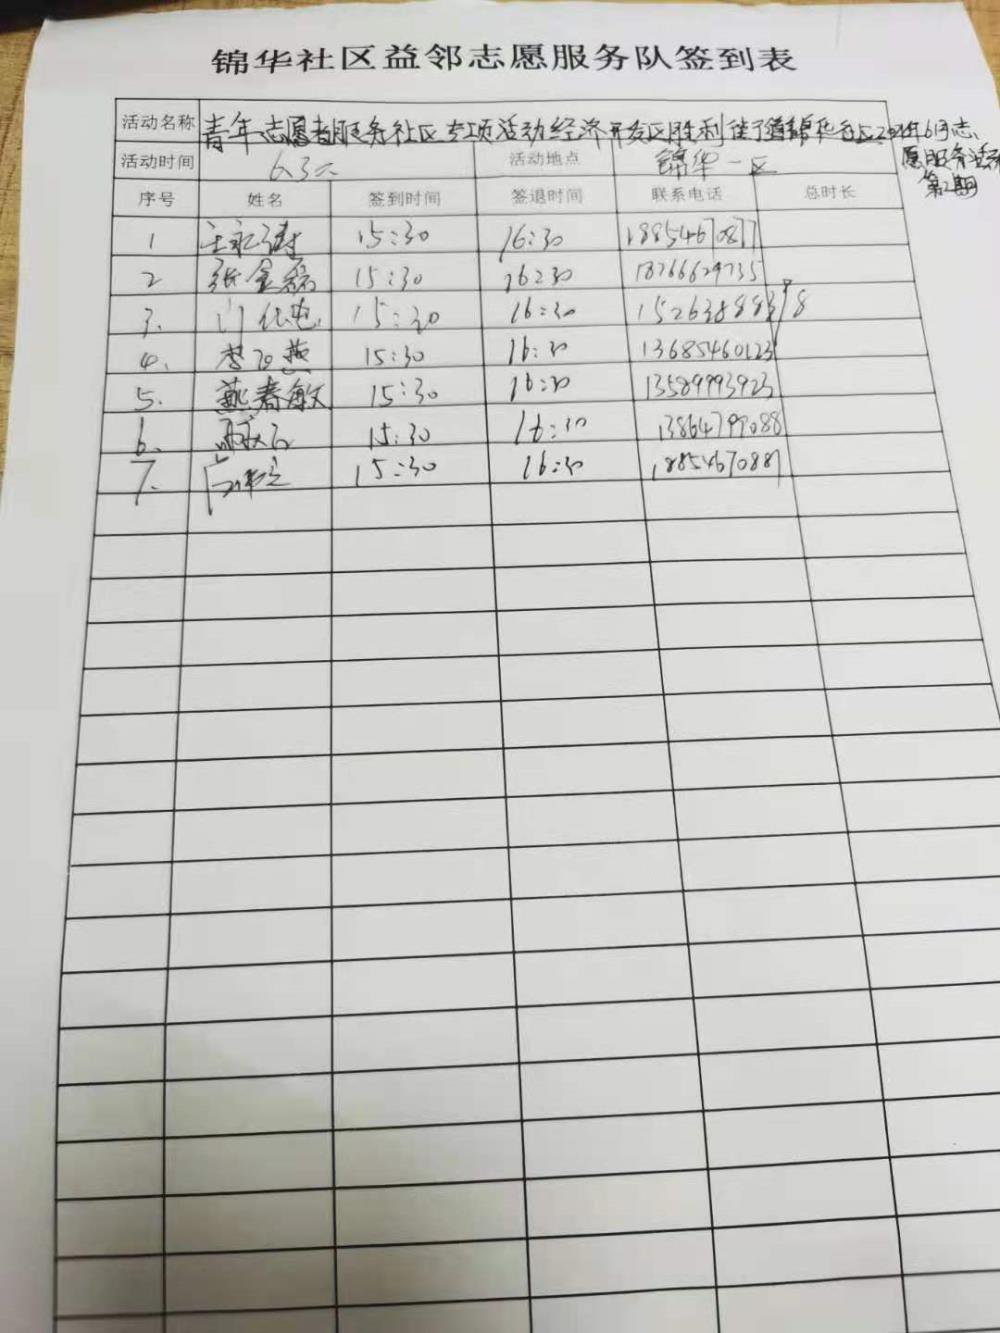 锦华社区益邻志愿服务队签到表
活动名称 青年志愿者服务社区专项活动经济开发区胜利街道锦华社区2021年6月志
愿服务活动
第2期
活动时间 6.30 活动地点 锦华一区
序号 姓名 签到时间 签退时间 联系电话 总时长
1 王永涛 15:30 16:30 18854670877
2 张金磊 15:30 16:30 18766629735
3. 15:30 16:30 15263888378
4. 15:30 16:30 13685460123
5. 燕春敏 15:30 16:30 13589993923
6. 15:30 16:30 13864799088
7. 15:30 16:30 18854670887